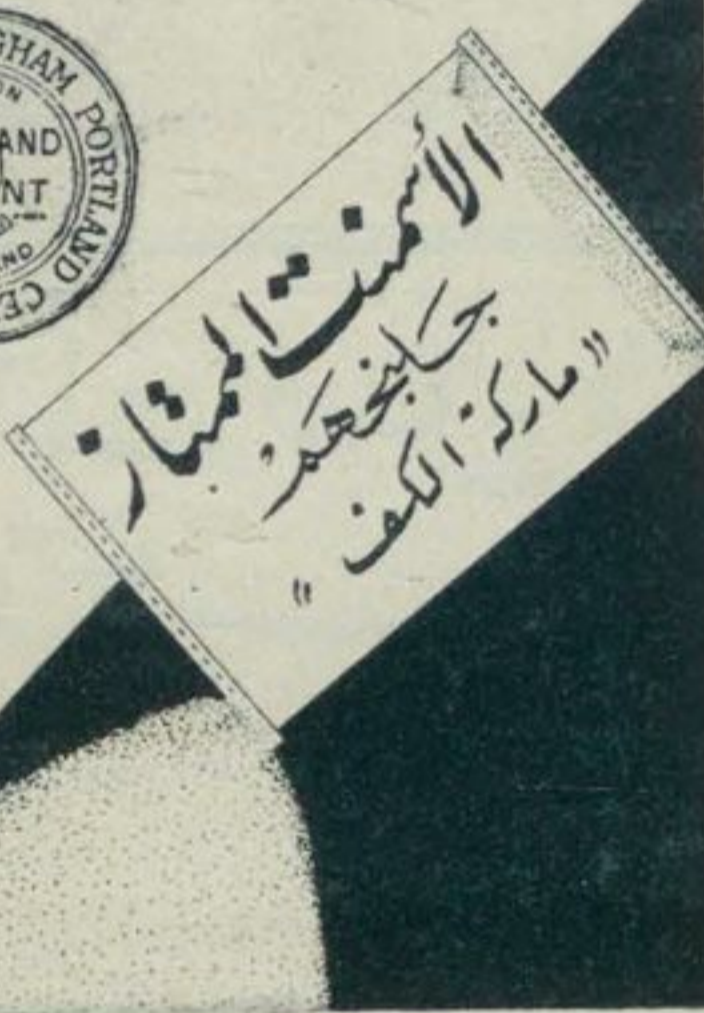 GHAM PORTLAND CE
AND
NT
الأسمنت الممتاز
جلنجهم
"ماركة الكف"